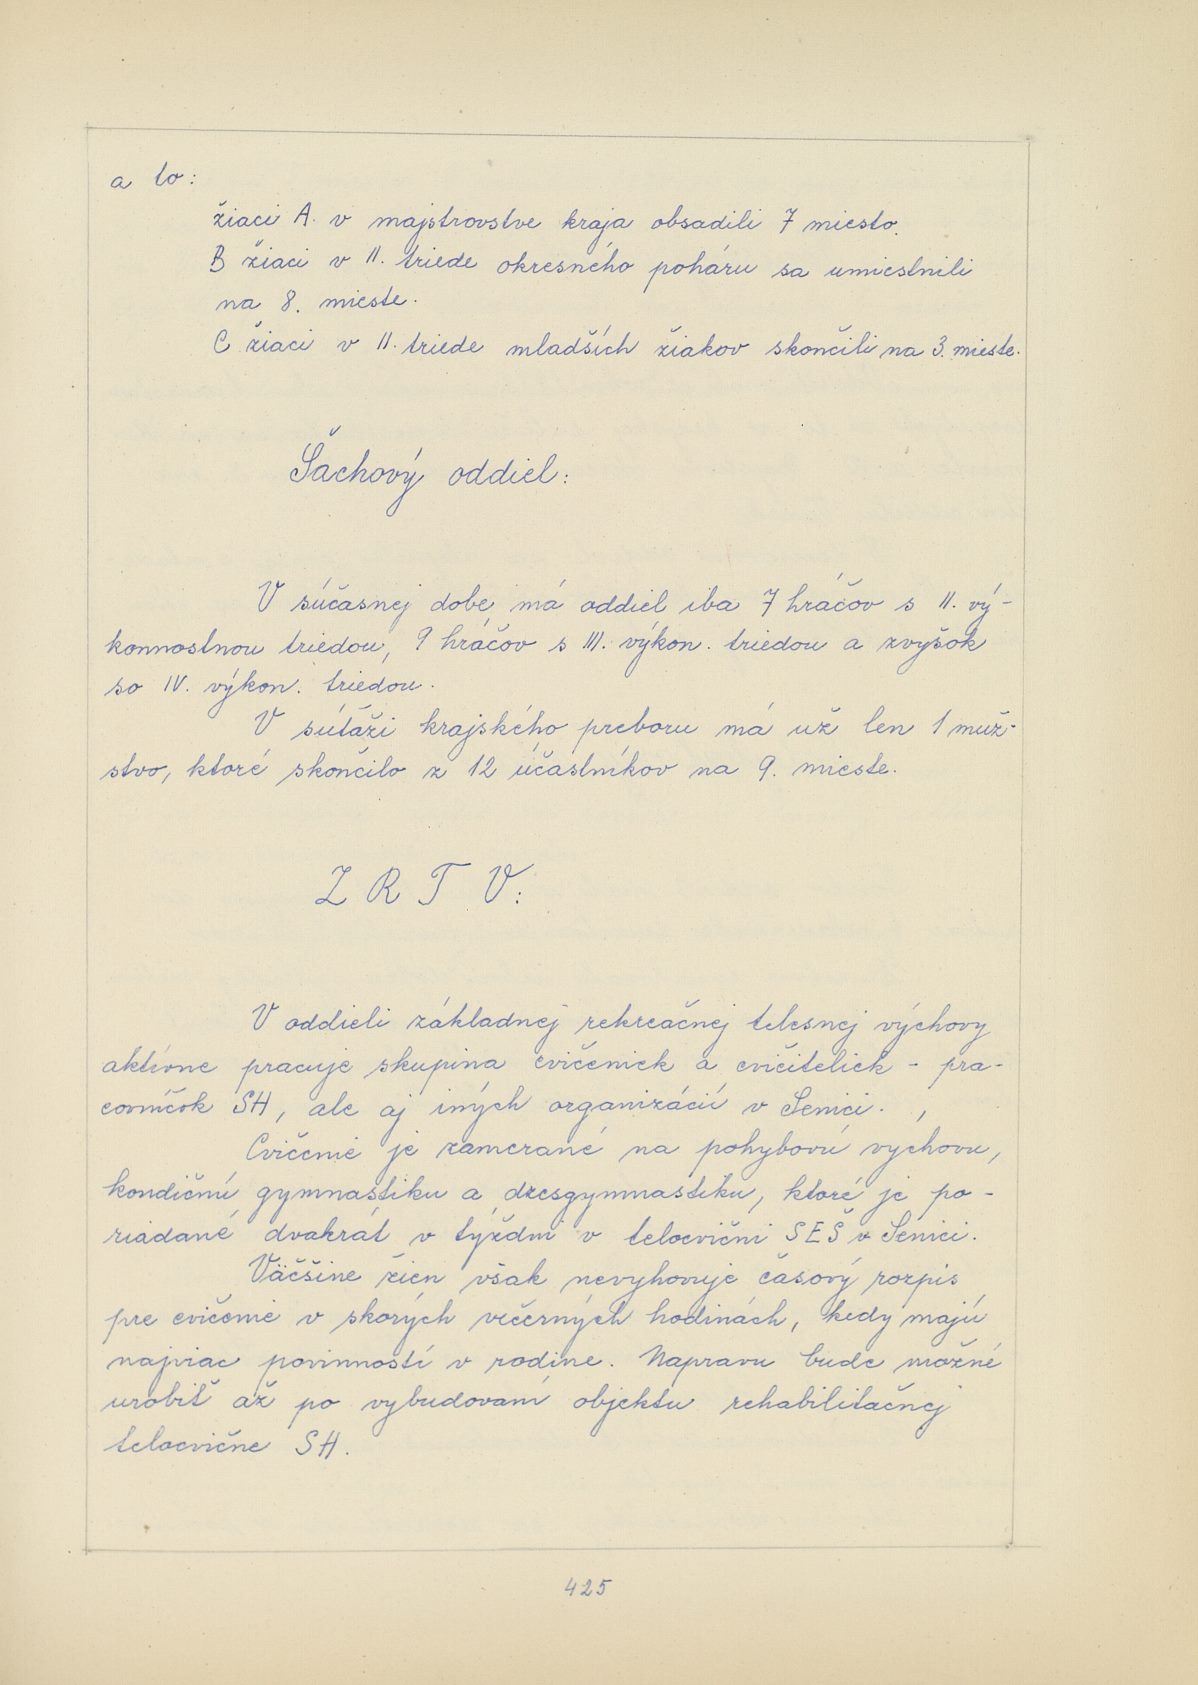 a to:
žiaci A. v majstrovstve kraja obsadili 7 miesto.
B žiaci v II. triede okresného poháru sa umiestnili
na 8. mieste.
C žiaci v II. triede mladších žiakov skončili na 3. mieste.
Šachový oddiel:
V súčasnej dobe má oddiel iba 7 hráčov s II. vý-
konnostnou triedou, 9 hráčov s III. výkon. triedou a zvyšok
so IV. výkon. triedou.
V súťaži krajského preboru má už len 1 muž-
stvo, ktoré skončilo z 12 účastníkov na 9. mieste.
Z R T V:
V oddieli základnej rekreačnej telesnej výchovy
aktívne pracuje skupina cvičeniek a cvičiteliek - pra-
covníčok SH, ale aj iných organizácií v Senici.
Cvičenie je zamerané na pohybovú vychovu,
kondičnú gymnastiku a dzesgymnastiku, ktoré je po-
riadané dvakrát v týždni v telocvični SEŠ v Senici.
Väčšine žien však nevyhovuje časový rozpis
pre cvičenie v skorých večerných hodinách, kedy majú
najviac povinností v rodine. Napravu bude možné
urobiť až po vybudovaní objektu rehabilitačnej
telocvične SH.
425